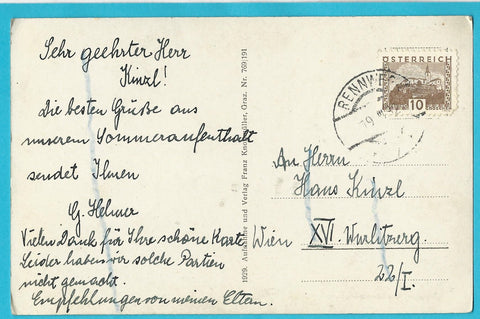 Sehr geehrter Herr
Kinzl!
Die besten Grüße aus
unserem Sommeraufenthalt
sendet Ihnen
G. Helmer
Vielen Dank für Ihre schöne Karte
Leider haben wir solche Partien
nicht gemacht.
Empfehlungen von meinen Eltern.
1929. Aufnahme und Verlag Franz Graz. Nr. 769/191
ÖSTERREICH
10
RENNWEG
An Herrn
Hans Kinzl
Wien XVI. Wurlitzerg.
22/I.